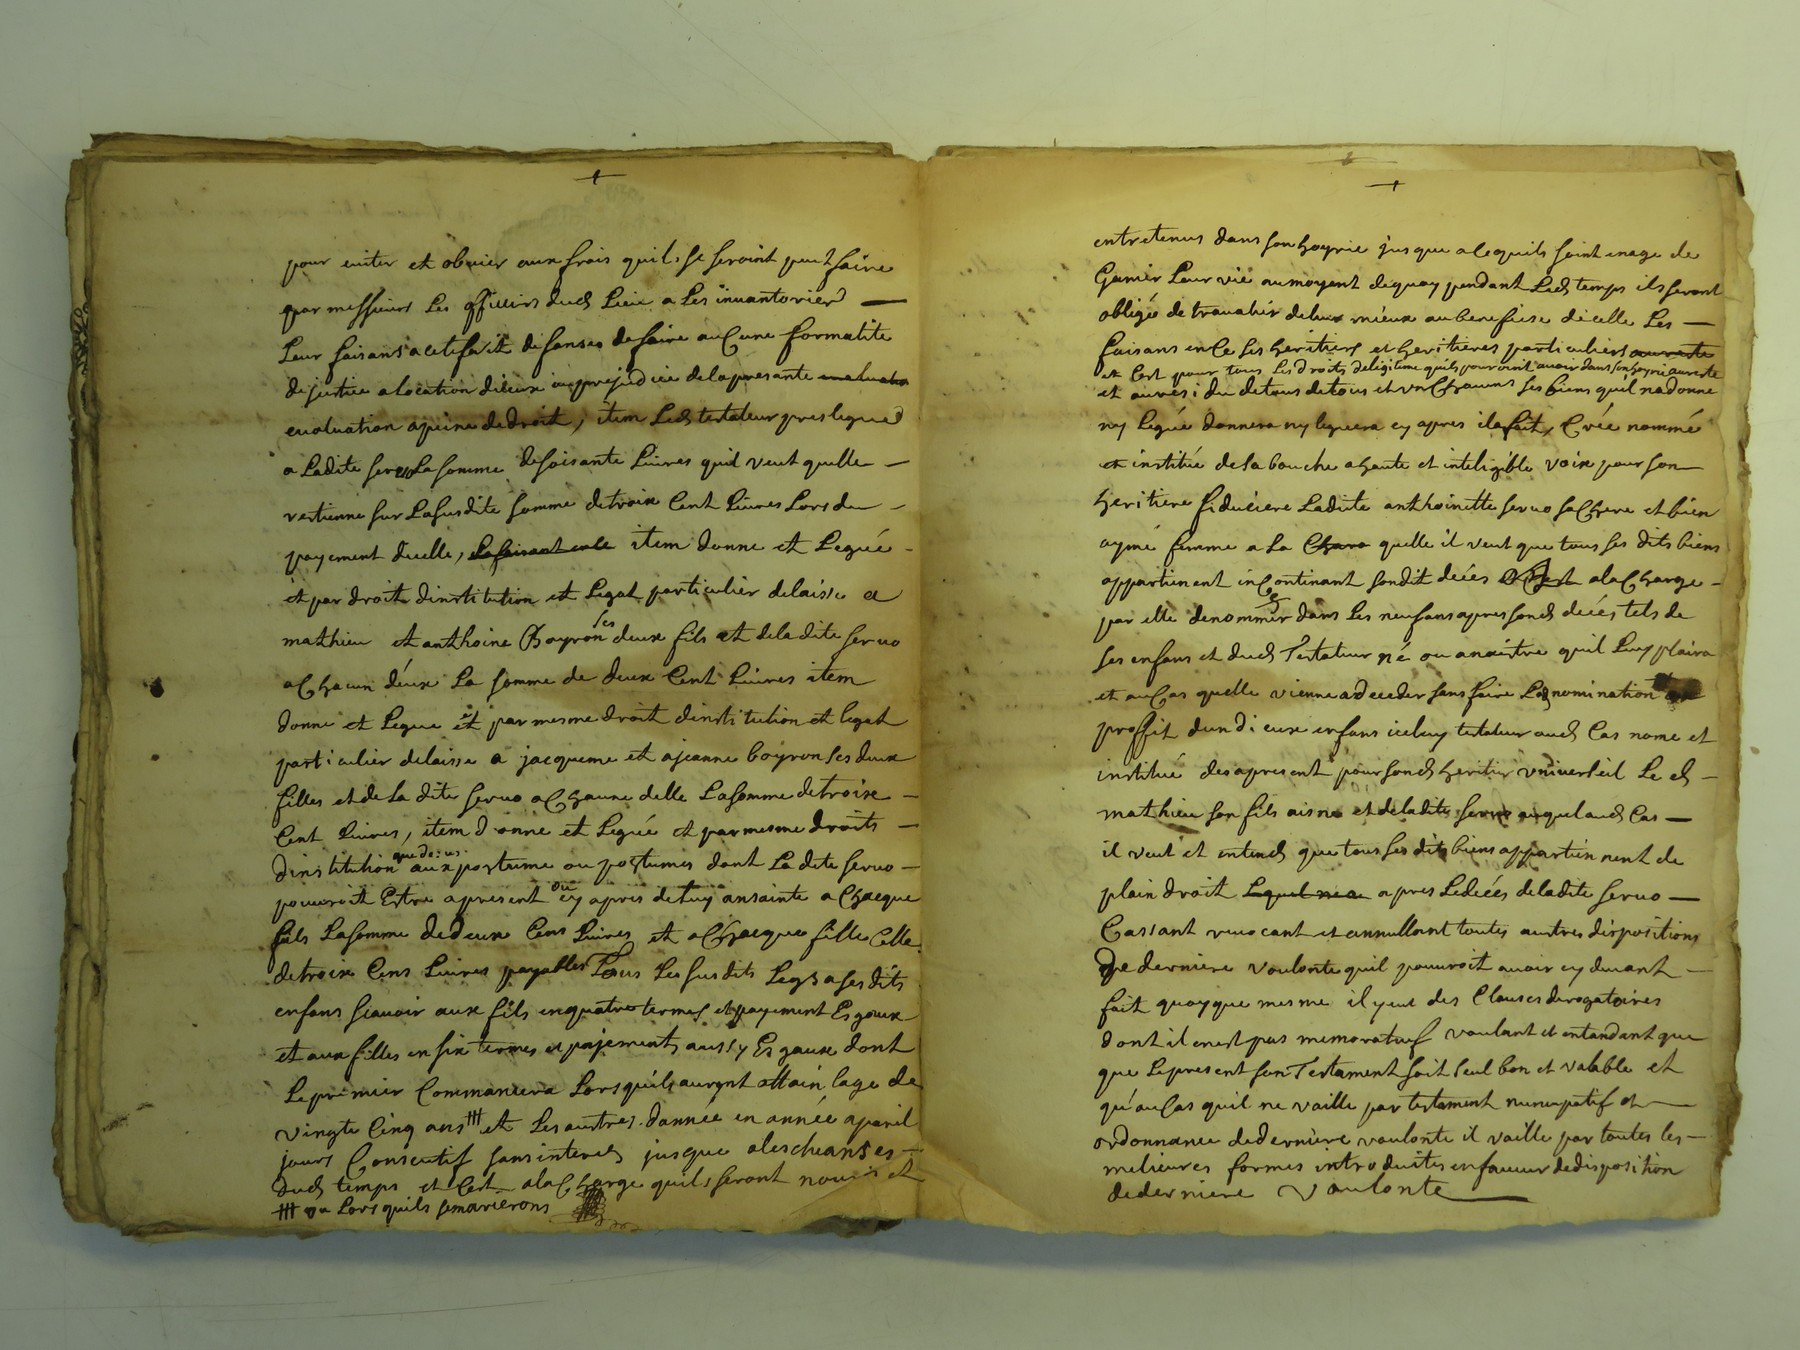 pour eviter et obvier aux frais quil se seroint peut faire
par messieurs les officiers dud lieu a les invantorier
leur faisans a cet effait defanses de faire aucune formalite
de justice alocation dieux au prejudice de la presante evaluation
evaluation a peine de droit, item led testateur preslegue
a ladite servo la somme de soisante livres quil veut quelle
vertienne sur la susdite somme de troix cent livres lors du
payement dicelle, la faisant icele item donne et legué
et par droit dinstitution et legat particulier delaisse a
mathieu et anthoine Boyron ses deux fils et de ladite servo
a chacun deux la somme de deux cent livres item
donne et legue et par mesme droit dinstitution et legat
particulier delaisse a jacqueme et a jeanne boyron ses deux
filles et de la dite servo a chacune delle la somme de troix
cent livres, item donne et legué et par mesme droits
dinstitution que desus aux postume ou postumes dont la dite servo
pouuroit estre a present ou cy apres de luy ansainte a chacque
fils la somme de deux cens livres et a chacque fille celle
de troix cens livres payables tous les susdits legs a ses dits
enfans scavoir aux fils en quatre termes et payement esgaux
et aux filles en six termes et pajements aussy esgaux dont
le premier commancera lors quils auront attain lage de
vingte cinq ans et les austres dannée en année a pareil
jours consecutif sans interes jusque a les cheanses
dud temps et cest a la charge quils seront nouris et
ou lors quils se marierons
entretenus dans son hoyrie jusque a ce quils soint en age de
ganier leur vie au moyent de quoy pendant led temps ils seront
obligés de travahir de leur mieux au benefice dicelle les
faisans en ce ses heritiers et heritieres particuliers au reste
et cest pour tous les droits de legitime quils pourroint avoir dans son hoyrie au reste
et au resi du de tous de tous et un chacuns ses biens quil na donne
ny legué donnera ny leguera cy apres il a fait, créé nommé
et institué de sa bouche a haute et inteligible voix pour son
heritiere fiduciere ladite anthoinette servo sa chere et bien
aymé femme a la quelle il veut que tous ses dits biens
appartienent incontinant sondit decés a la charge
par elle de nommer dans les neuf ans apres sond decés tels de
ses enfans et dud testateur né ou a naistre quil luy plaira
et au cas quelle vienne a deceder sans faire lad nomination au
proffit dun dieux enfans iceluy testateur aud cas nome et
institué des apresent pour sond heritier universeil le d
mathieu son fils aisne et de ladite servo auquel aud cas
il veut et entend que tous ses dits biens appartiennent de
plain droit apres le decés de ladite servo
cassant revocant et annullant toutes austres dispositions
de derniere voulonte quil pouuroit avoir cy devant
fait quoyque mesme il y eut des clauses derogatoires
dont il nest pas memoratif voulant et entandant que
que le present son testament soit seul bon et valable et
qu'au cas quil ne vaille par testament nuncupatif et
ordonnance de derniere voulonte il vaille par toutes les
melieures formes introduites en faveur de disposition
de derniere voulonte